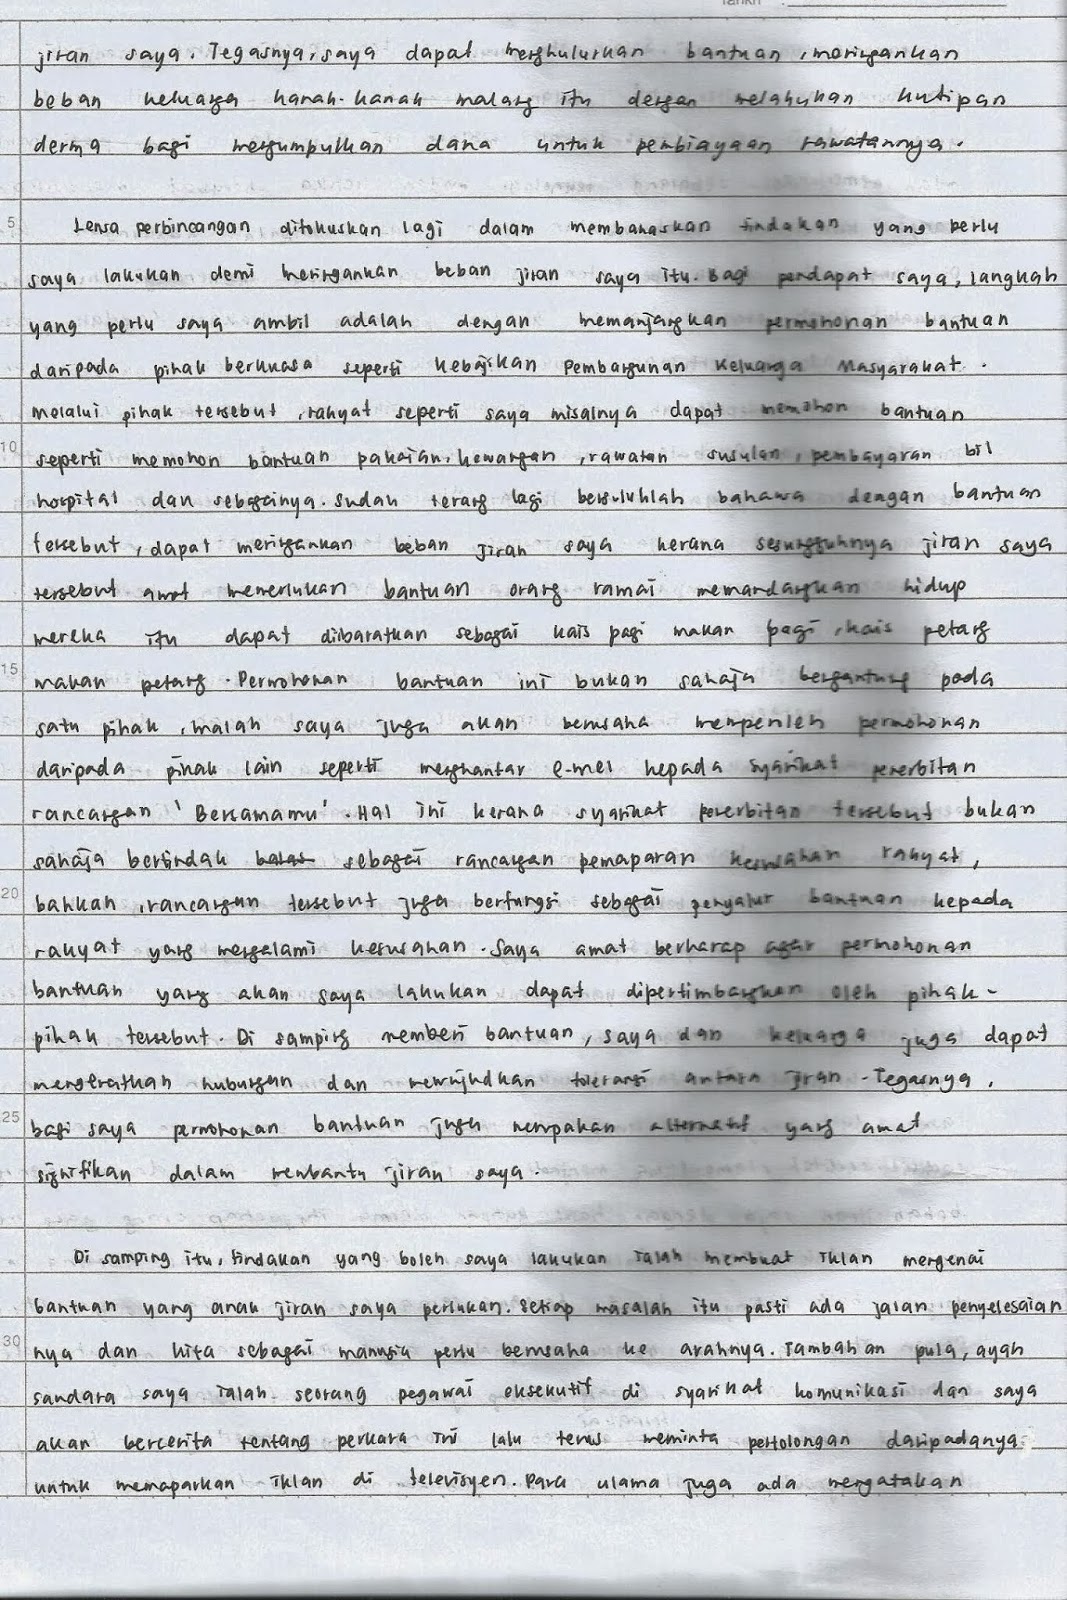 Tarikh :
jiran saya. Tegasnya, saya dapat menghulurkan bantuan, meringankan
beban keluarga kanak-kanak malang itu dengan melakukan kutipan
derma bagi mengumpulkan dana untuk pembiayaan rawatannya.
5 Lensa perbincangan difokuskan lagi dalam membahaskan tindakan yang perlu
saya lakukan demi meringankan beban jiran saya itu. Bagi pendapat saya, langkah
yang perlu saya ambil adalah dengan memanjangkan permohonan bantuan
daripada pihak berkuasa seperti Kebajikan Pembangunan Keluarga Masyarakat.
Melalui pihak tersebut, rakyat seperti saya misalnya dapat memohon bantuan
10 seperti memohon bantuan pakaian, kewangan, rawatan susulan, pembayaran bil
hospital dan sebagainya. Sudah terang lagi bersuluhlah bahawa dengan bantuan
tersebut, dapat meringankan beban jiran saya kerana sesungguhnya jiran saya
tersebut amat memerlukan bantuan orang ramai memandangkan hidup
mereka itu dapat diibaratkan sebagai kais pagi makan pagi, kais petang
15 makan petang. Permohonan bantuan ini bukan sahaja bergantung pada
satu pihak, malah saya juga akan berusaha memperoleh permohonan
daripada pihak lain seperti menghantar e-mel kepada syarikat penerbitan
rancangan 'Bersamamu'. Hal ini kerana syarikat penerbitan tersebut bukan
sahaja bertindak sebagai rancangan pemaparan kesusahan rakyat,
20 bahkah, rancangan tersebut juga berfungsi sebagai penyalur bantuan kepada
rakyat yang mengalami kesusahan. Saya amat berharap agar permohonan
bantuan yang akan saya lakukan dapat dipertimbangkan oleh pihak-
pihak tersebut. Di samping memberi bantuan, saya dan keluarga juga dapat
mengeratkan hubungan dan mewujudkan toleransi antara jiran. Tegasnya,
25 bagi saya permohonan bantuan juga merupakan alternatif yang amat
signifikan dalam membantu jiran saya.
Di samping itu, tindakan yang boleh saya lakukan ialah membuat iklan mengenai
bantuan yang anak jiran saya perlukan. Setiap masalah itu pasti ada jalan penyelesaian
30 nya dan kita sebagai manusia perlu berusaha ke arahnya. Tambahan pula, ayah
saudara saya ialah seorang pegawai eksekutif di syarikat komunikasi dan saya
akan bercerita tentang perkara ini lalu terus meminta pertolongan daripadanya
untuk memaparkan iklan di televisyen. Para ulama juga ada mengatakan